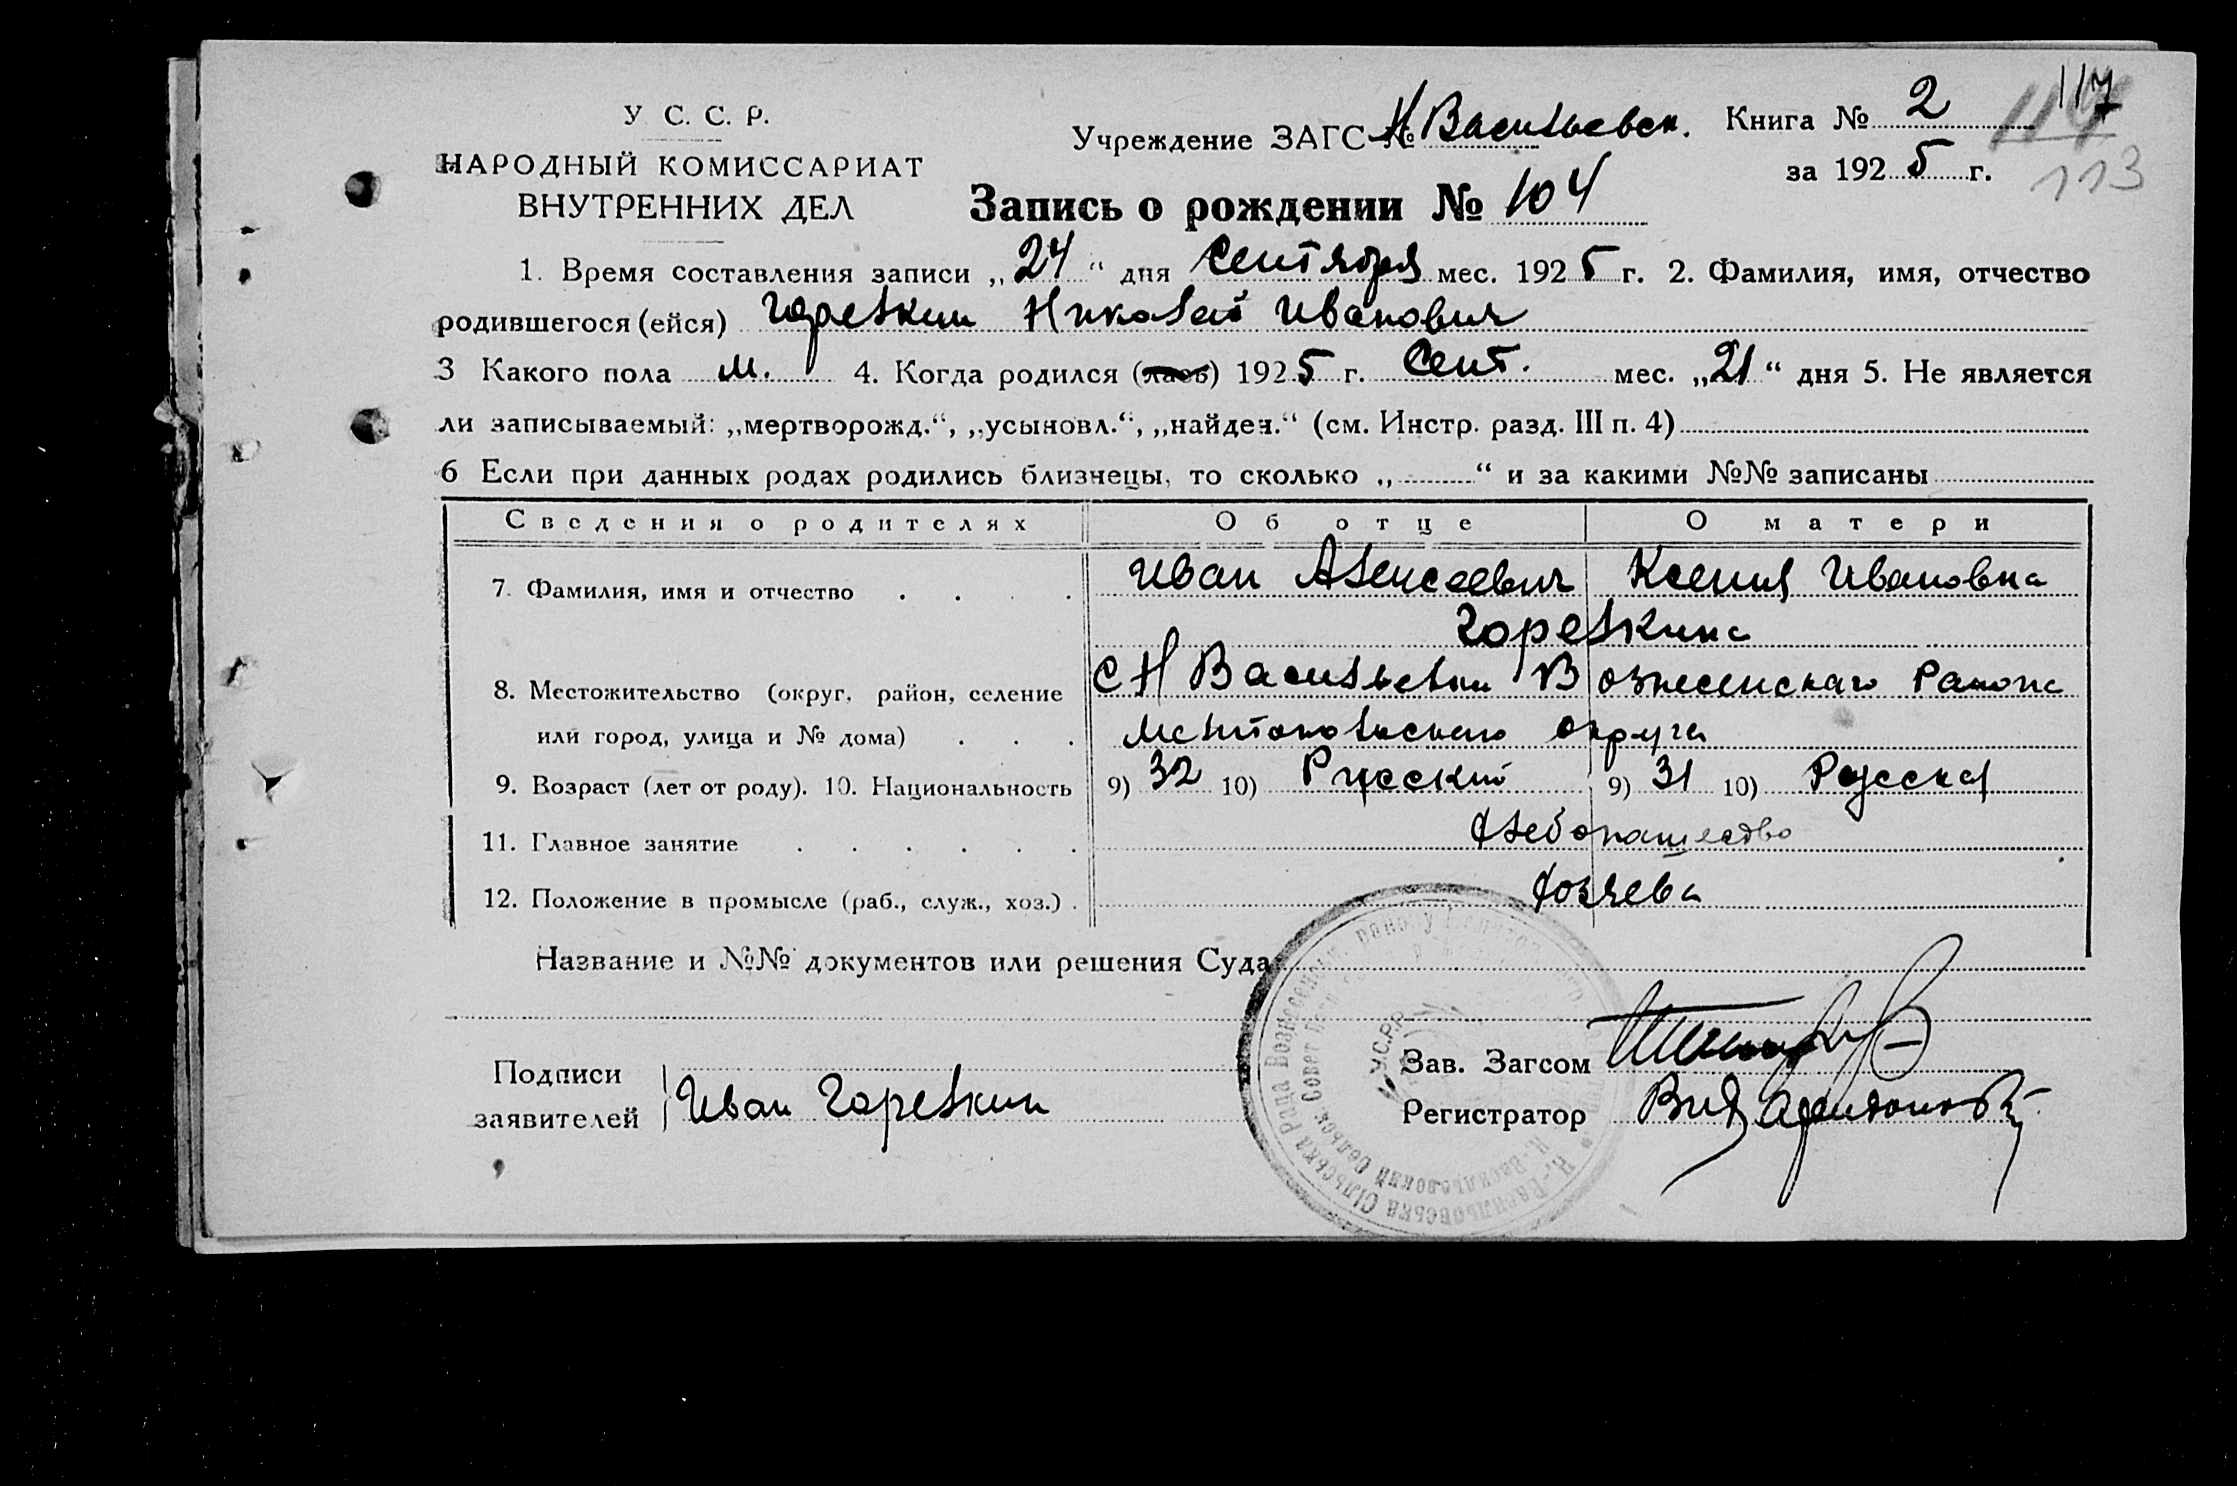 У. С. С. Р.
НАРОДНЫЙ КОМИССАРИАТ
ВНУТРЕННИХ ДЕЛ
Учреждение ЗАГС № Н Васильевск. Книга № 2
117
114
за 192 5 г.
113
Запись о рождении № 104
1. Время составления записи „ 24 “ дня Сентября мес. 192 5 г. 2. Фамилия, имя, отчество
родившегося (ейся) Горелкин Николай Иванович
3 Какого пола м. 4. Когда родился (лась) 192 5 г. Сент. мес. „ 21 “ дня 5. Не является
ли записываемый: „мертворожд.“, „усыновл.“, „найден.“ (см. Инстр. разд. III п. 4)
6 Если при данных родах родились близнецы, то сколько „ “ и за какими №№ записаны
Сведения о родителях Об отце О матери
7. Фамилия, имя и отчество Иван Алексеевич Ксения Ивановна
Горелкина
8. Местожительство (округ, район, селение С Н Васильевки Вознесенскаго Района
или город, улица и № дома) Мелитопольскаго округа
9. Возраст (лет от роду). 10. Национальность 9) 32 10) Русский 9) 31 10) Русская
11. Главное занятие Хлебопашество
12. Положение в промысле (раб., служ., хоз.) Хозяева
Название и №№ документов или решения Суда
У.С.Р.Р.
Зав. Загсом
Подписи
заявителей Иван Горелкин
Регистратор